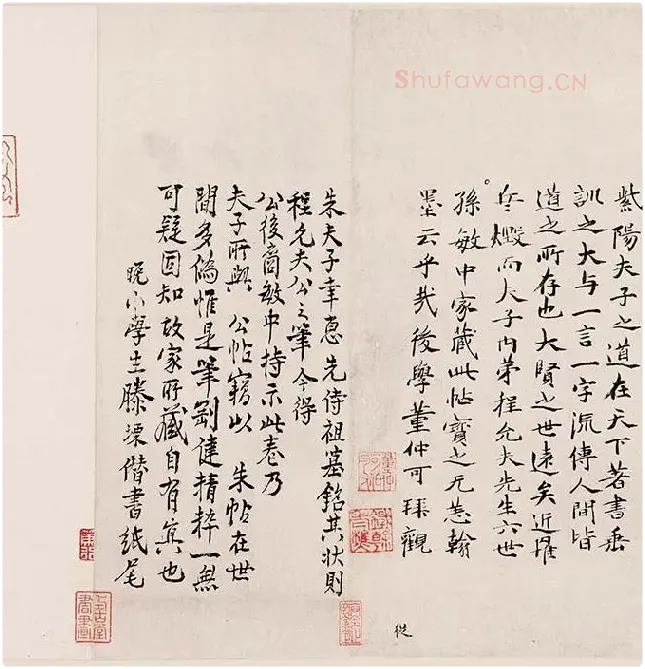 Shufawang.CN
紫陽夫子之道在天下著書垂
訓之大与一言一字流傳人間皆
道之所存也大賢之世遠矣近罹
兵燬而夫子内弟程允夫先生六世
孫敏中家藏此帖寳之尤恙翰
墨云乎哉後學董仲可拜觀
從
朱夫子幸惠先侍祖墓銘其状則
程允夫公之筆今得
公後裔敏中持示此卷乃
夫子所與 公帖竊以 朱帖在世
間多偽惟是筆劄健精粹一無
可疑固知故家所藏自有真也
晚小學生滕塛僭書紙尾